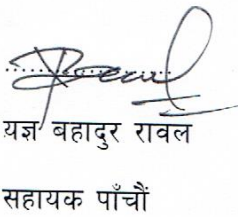 यज्ञ बहादुर रावल
सहायक पाँचौं